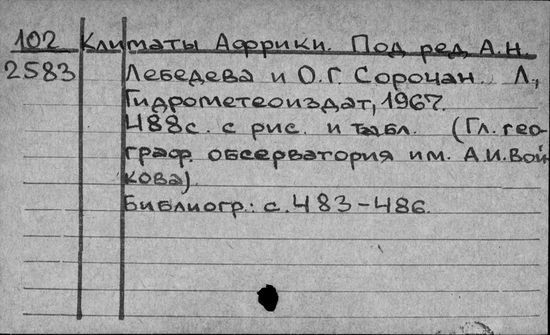 102 Климаты Африки. Под ред. А.Н.
2583 Лебедева и О.Г. Сорочан. Л.,
Гидрометеоиздат, 1967.
488с. с рис. и табл. (Гл. гео-
граф. обсерватория им. А.И. Вой-
кова)
Библиогр.: с. 483-486.